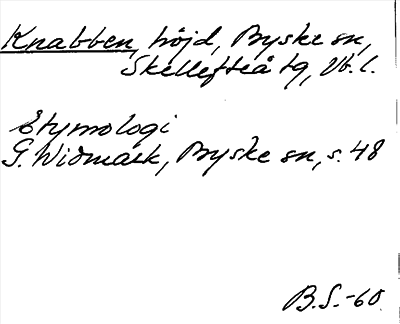 Knabben, höjd, Byske sn,
Skellefteå tg, Vb. l.
Etymologi
G. Widmark, Byske sn, s. 48
B.S.-60